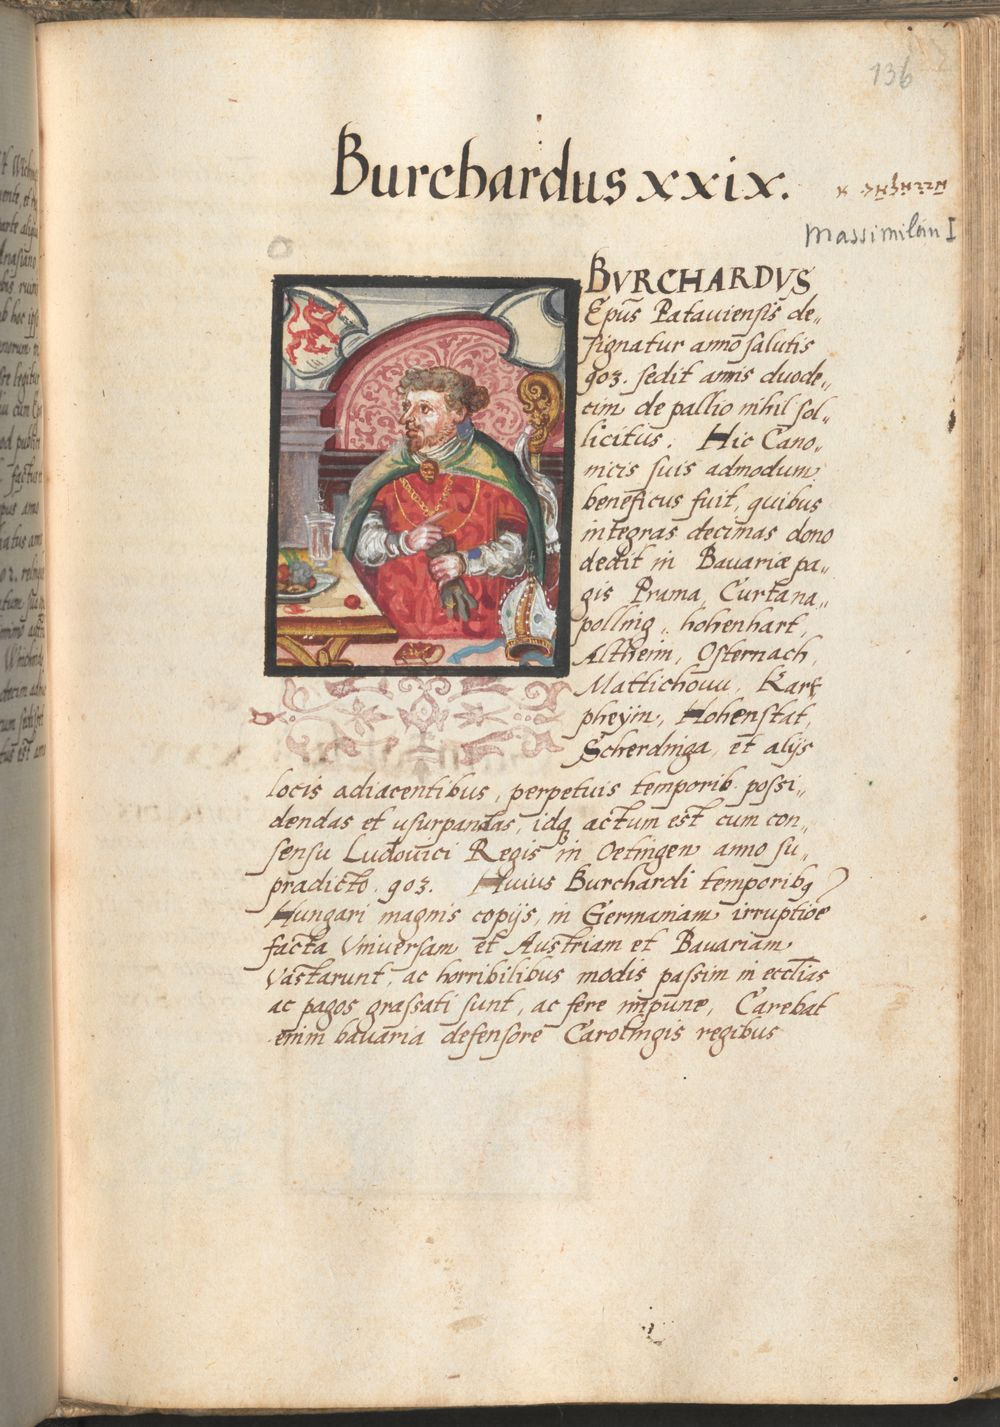 136
Burchardus xxix.
Massimilian I
BVRCHARDVS
Epũs Patauiensis de„
signatur anno salutis
903. sedit annis duode„
cim de pallio nihil sol„
licitus. Hic Cano„
nicis suis admodum
beneficus fuit, quibus
integras decimas dono
dedit in Bauariæ pa„
gis Prama, Curtana„
polling, hohenhart,
Altheim, Osternach,
Mattichouu, Karp
pheijm, Hohenstat,
Scherdinga, et alijs
locis adiacentibus, perpetuis temporib. possi„
dendas et usurpandas, idq actum est cum con„
sensu Ludouici Regis in Oetingen anno su„
pradicto. 903. Huius Burchardi temporibq
Hungari magnis copijs, in Germaniam irruptiõe
facta Vniuersam et Austriam et Bauariam
Vastarunt, ac horribilibus modis passim in ecclĩas
ac pagos grassati sunt, ac fere impune, Carebat
enim bauaria defensore Carolingis regibus